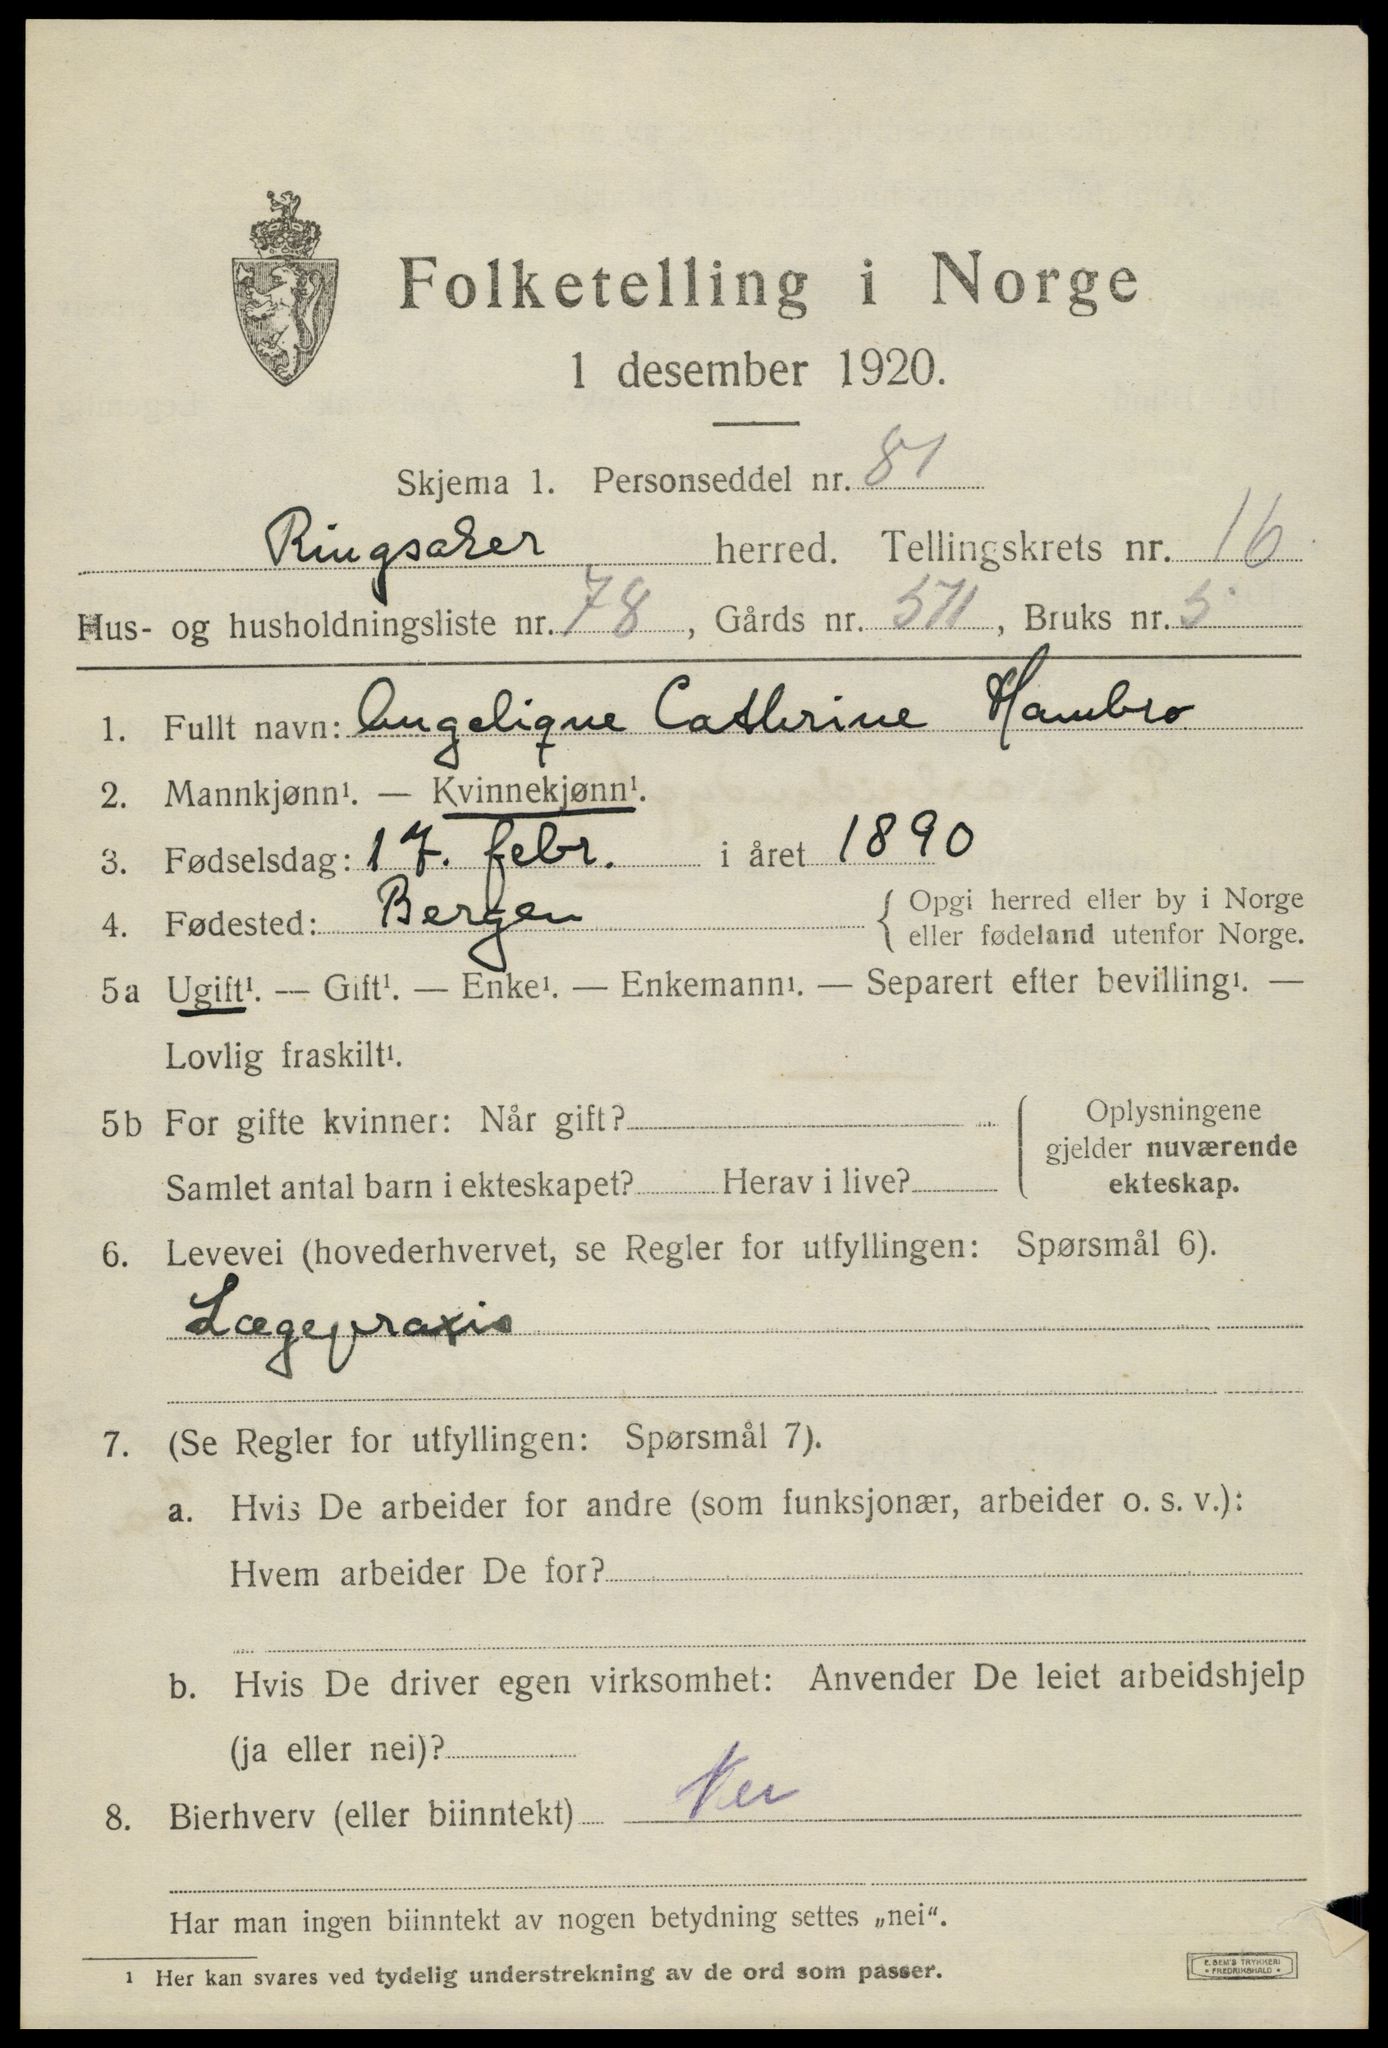 Folketelling i Norge
1 desember 1920.
Skjema 1. Personseddel nr. 81
Ringsaker herred. Tellingskrets nr. 16
Hus- og husholdningsliste nr. 78, Gårds nr. 571, Bruks nr. 5
1. Fullt navn: Angelique Cathrine Hambro
2. Mannkjønn¹. — Kvinnekjønn¹.
3. Fødselsdag: 17. febr. i året 1890
4. Fødested: Bergen { Opgi herred eller by i Norge
eller fødeland utenfor Norge.
5a Ugift¹. — Gift¹. — Enke¹. — Enkemann¹. — Separert efter bevilling¹. —
Lovlig fraskilt¹.
5b For gifte kvinner: Når gift?
Samlet antal barn i ekteskapet? Herav i live?
Oplysningene
gjelder nuværende
ekteskap.
6. Levevei (hovederhvervet, se Regler for utfyllingen: Spørsmål 6).
Lægepraxis
7. (Se Regler for utfyllingen: Spørsmål 7).
a. Hvis De arbeider for andre (som funksjonær, arbeider o. s. v.):
Hvem arbeider De for?
b. Hvis De driver egen virksomhet: Anvender De leiet arbeidshjelp
(ja eller nei)?
8. Bierhverv (eller biinntekt) Nei
Har man ingen biinntekt av nogen betydning settes „nei“.
¹ Her kan svares ved tydelig understrekning av de ord som passer.
E. SEM'S TRYKKERI
• FREDRIKSHALD •